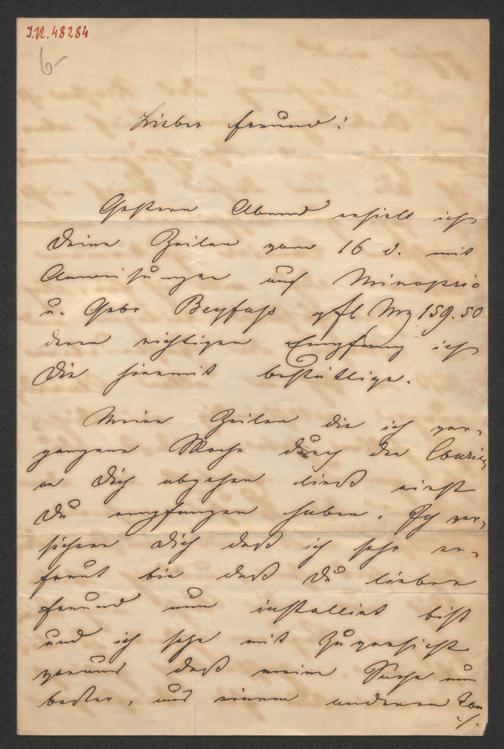 I.N. 48284
6
Lieber Freund!
Gestern Abend erhielt ich
Deine Zeilen vom 16 d. mit
Anweisungen auf
u. Gebr Beyfuss 159.50
deren richtigen Empfang ich
Dir hiermit bestättige.
Meine Zeilen die ich ver-
gangene Woche durch den Courier
an Dich abgehen ließ wirst
Du empfangen haben. Ich ver-
sichere Dich daß ich sehr er-
freut bin daß Du lieber
Freund nun installirt bist
und ich sehe mit Zuversicht
voraus daß meine Sache nun
besser, und einem anderen
./.